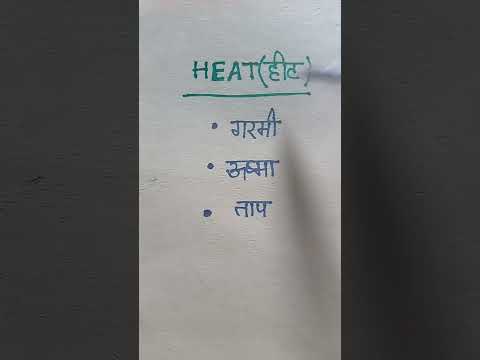 HEAT(हीट)
• गरमी
• ऊष्मा
• ताप